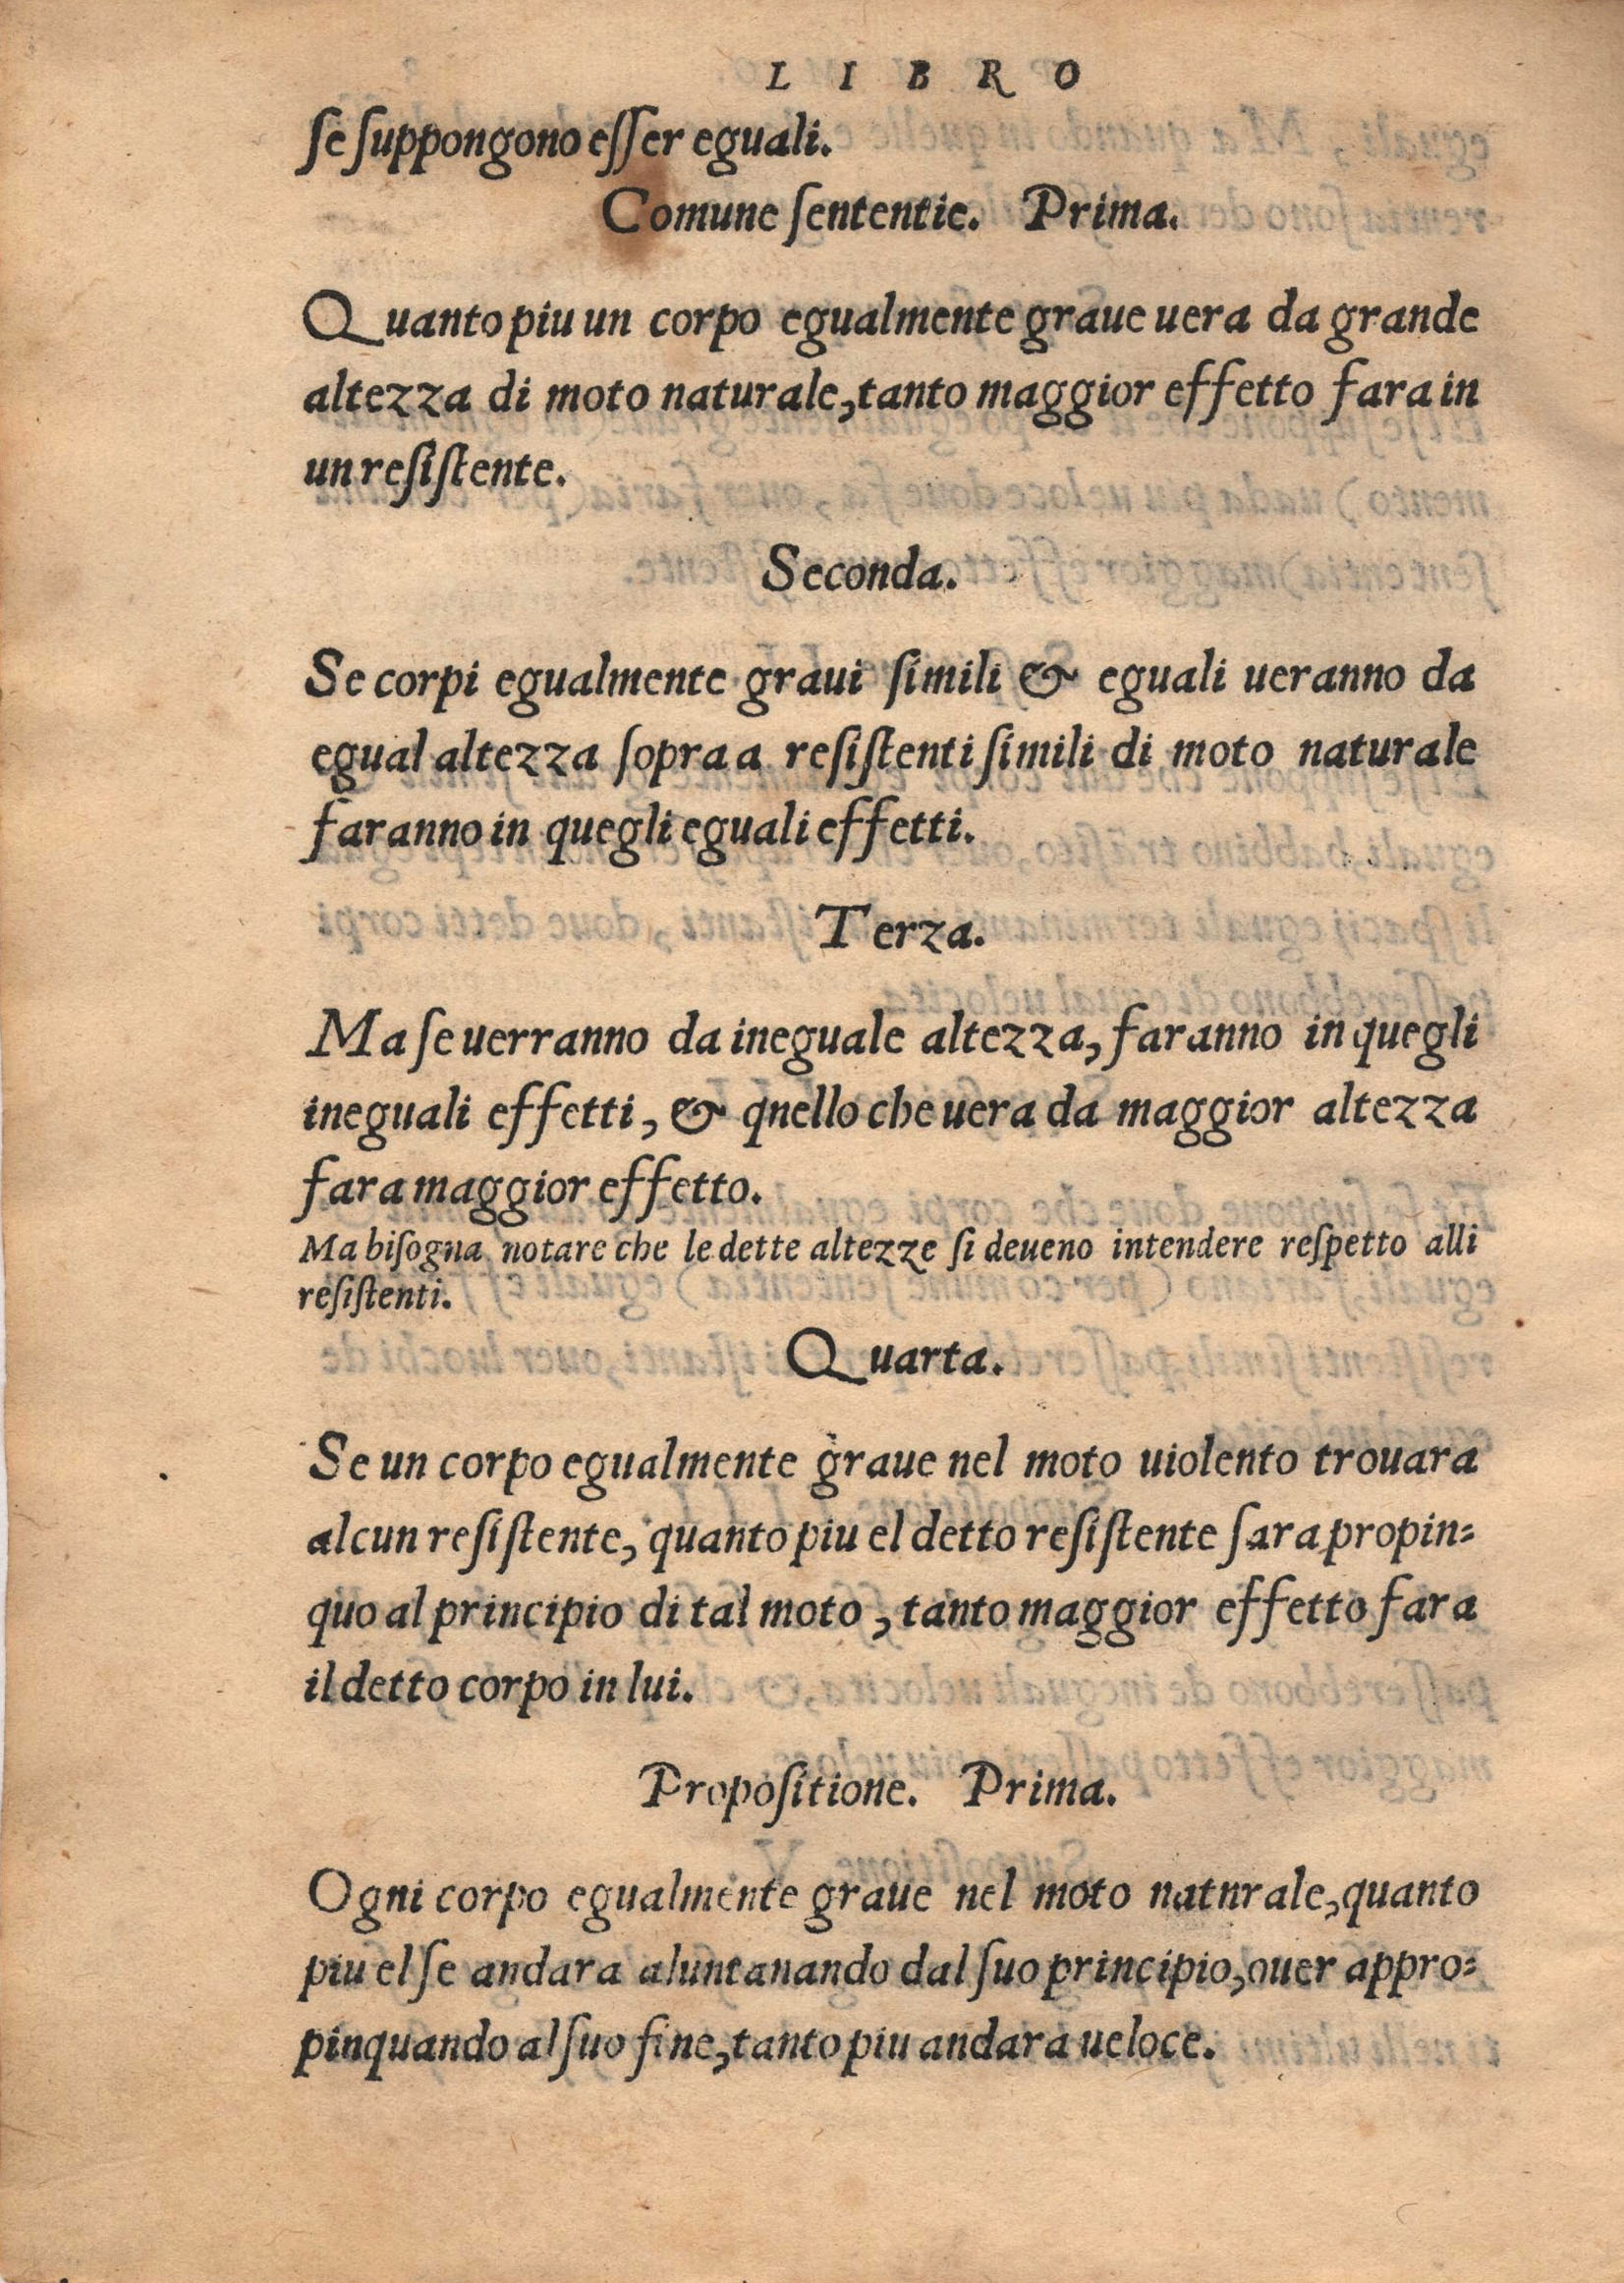 LIBRO
ſe ſuppongono eſſer eguali.
Comune ſententie. Prima.
Quanto piu un corpo egualmente graue uera da grande
altezza di moto naturale, tanto maggior effetto fara in
un reſiſtente.
Seconda.
Se corpi egualmente graui ſimili & eguali ueranno da
egual altezza ſopra a reſiſtenti ſimili di moto naturale
faranno in quegli eguali effetti.
Terza.
Ma ſe uerranno da ineguale altezza, faranno in quegli
ineguali effetti, & qnello che uera da maggior altezza
fara maggior effetto.
Ma biſogna notare che le dette altezze ſi deueno intendere reſpetto alli
reſiſtenti.
Quarta.
Se un corpo egualmente graue nel moto uiolento trouara
alcun reſiſtente, quanto piu el detto reſiſtente ſara propin=
quo al principio di tal moto, tanto maggior effetto fara
il detto corpo in lui.
Propoſitione. Prima.
Ogni corpo egualmente graue nel moto natnrale, quanto
piu el ſe andara aluntanando dal ſuo principio, ouer appro=
pinquando al ſuo fine, tanto piu andara ueloce.